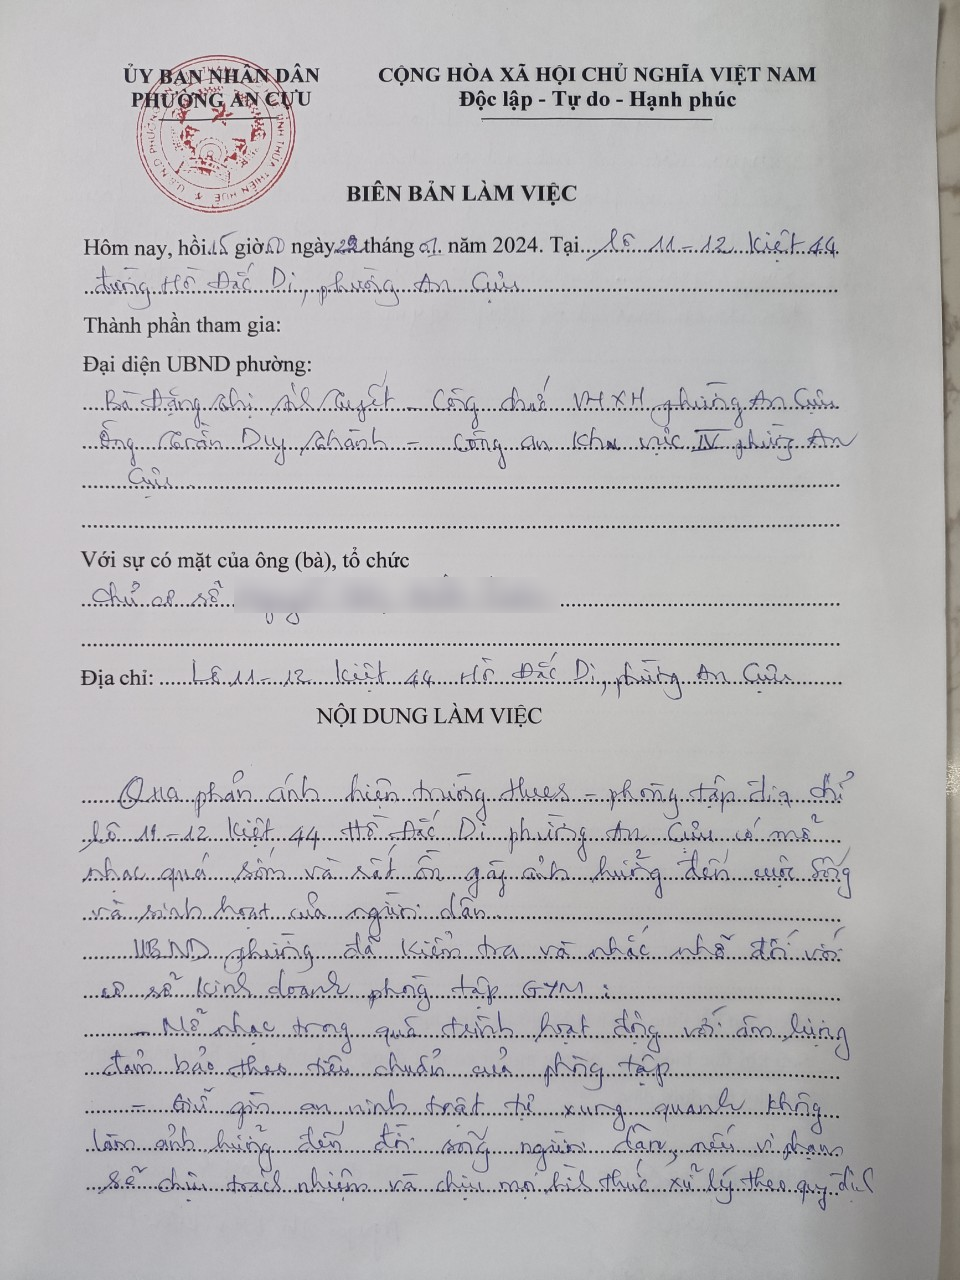 ỦY BAN NHÂN DÂN
PHƯỜNG AN CỰU
CỘNG HÒA XÃ HỘI CHỦ NGHĨA VIỆT NAM
Độc lập - Tự do - Hạnh phúc
BIÊN BẢN LÀM VIỆC
Hôm nay, hồi 15 giờ 50 ngày 22 tháng 01. năm 2024. Tại Lô 11-12 Kiệt 44
đường Hồ Đắc Di, phường An Cựu
Thành phần tham gia:
Đại diện UBND phường:
Bà Đặng Thị Tuyết - Công chức VHXH phường An Cựu
Ông Trần Duy Khánh - Công an khu vực IV phường An
Cựu
Với sự có mặt của ông (bà), tổ chức
Chủ cơ sở
Địa chỉ: Lô 11-12 Kiệt 44 Hồ Đắc Di, phường An Cựu
NỘI DUNG LÀM VIỆC
Qua phản ánh hiện trường Hues - phòng tập địa chỉ
Lô 11-12 Kiệt 44 Hồ Đắc Di phường An Cựu có mở
nhạc quá sớm và rất ồn gây ảnh hưởng đến cuộc sống
và sinh hoạt của người dân
UBND phường đã kiểm tra và nhắc nhở đối với
cơ sở kinh doanh phòng tập GYM:
- Mở nhạc trong quá trình hoạt động với âm lượng
đảm bảo theo tiêu chuẩn của phòng tập
- Giữ gìn an ninh trật tự xung quanh không
làm ảnh hưởng đến đời sống người dân, nếu vi phạm
sẽ chịu trách nhiệm và chịu mọi hình thức xử lý theo quy định